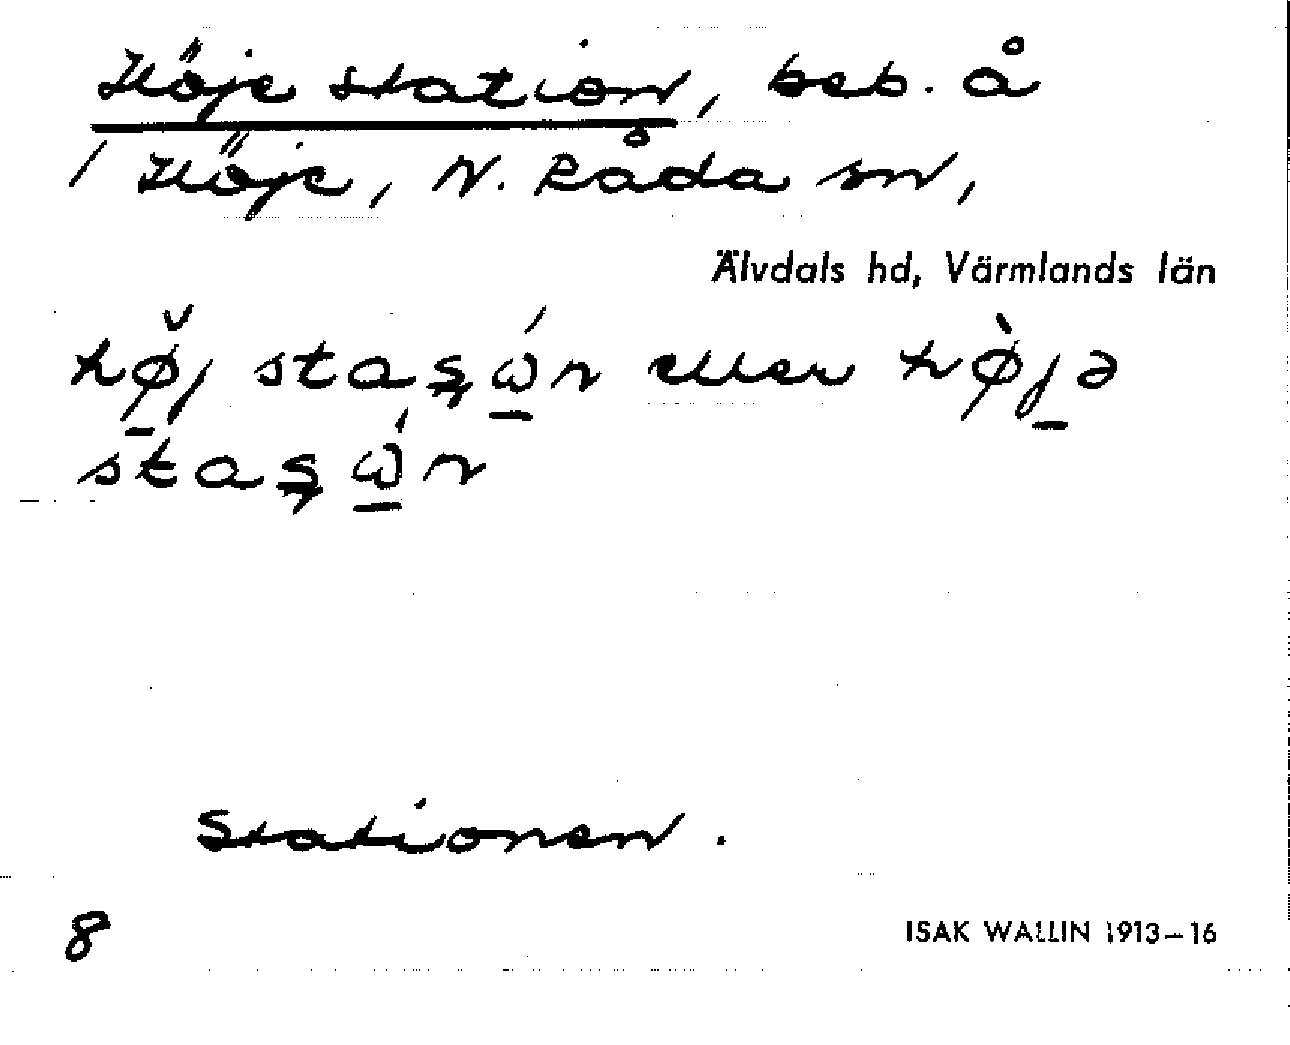 Höje station, beb. å
/ Höje, N. Råda sn,
Älvdals hd, Värmlands län
hø̌j staʂώn eller hø̀jə
staʂώn
Stationen.
8
ISAK WALLIN 1913–16